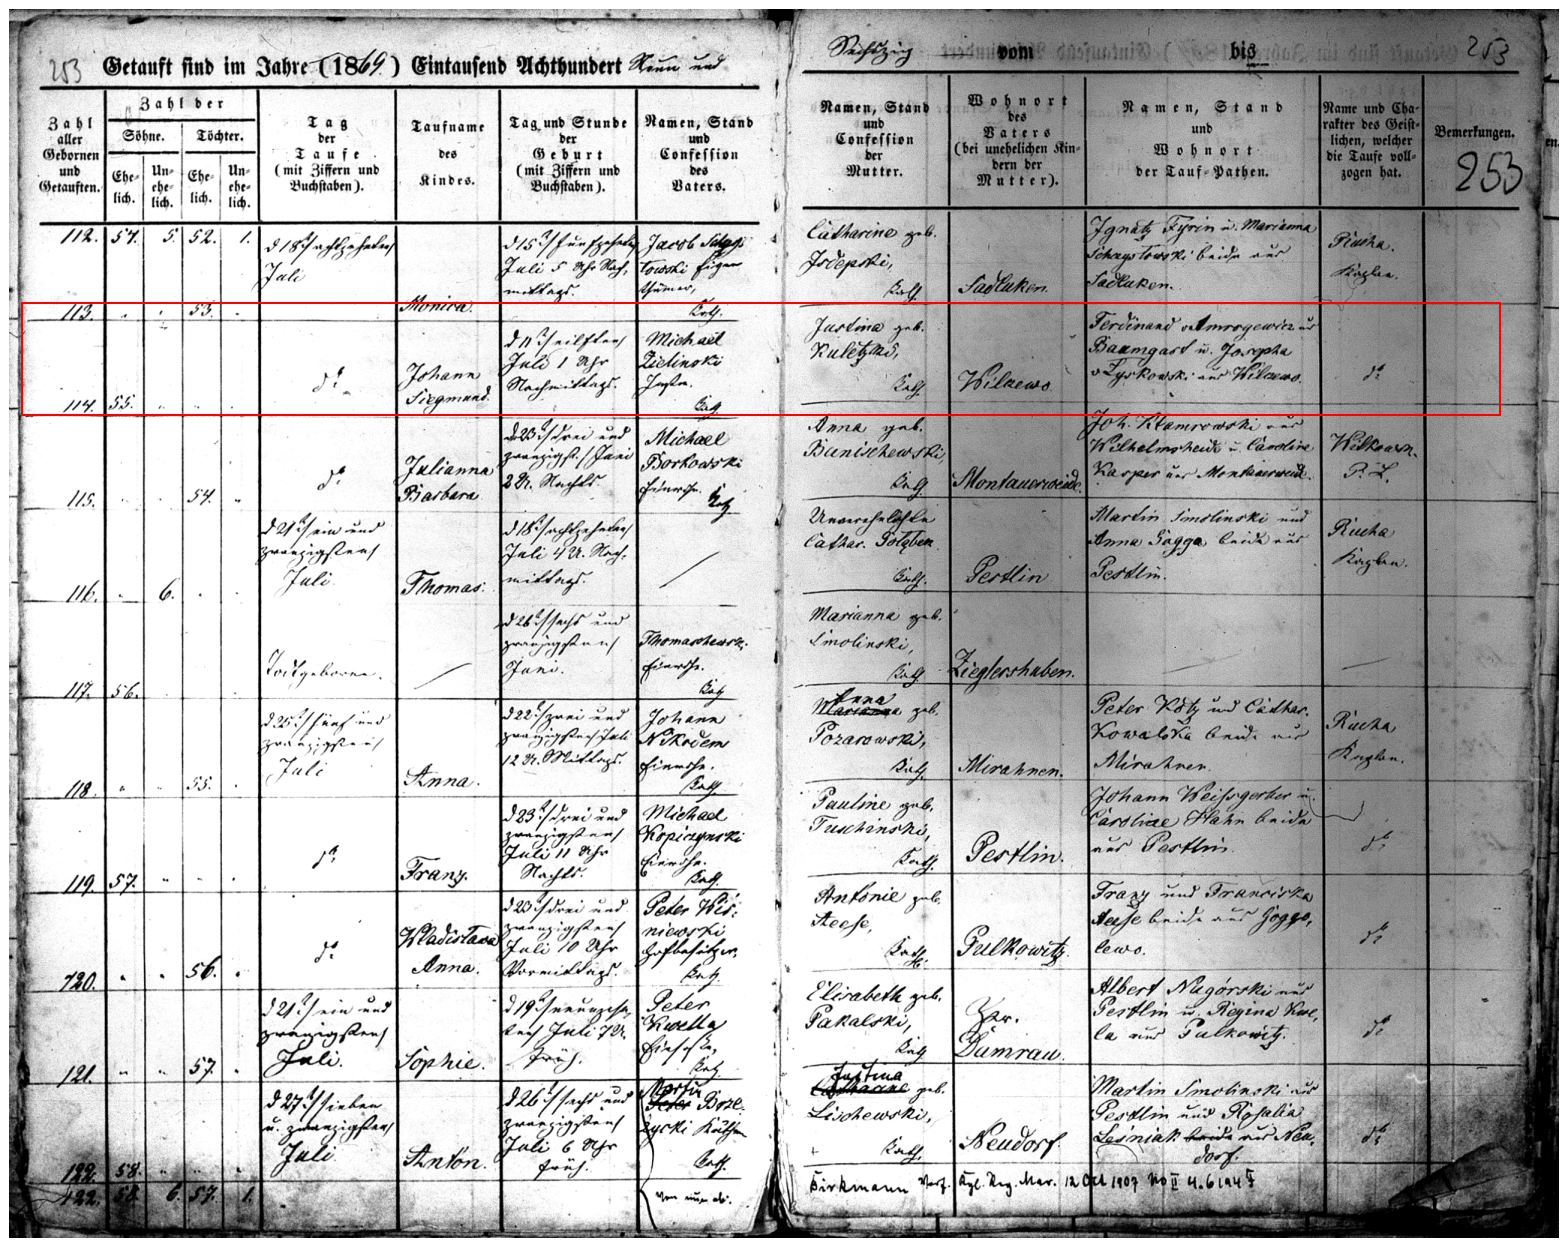 253 Getauft sind im Jahre (1869) Eintausend Achthundert Neun und
Sechszig vom bis 253
Zahl aller Gebornen und Getauften.
Zahl der
Söhne. Töchter.
Ehelich. Unehelich. Ehelich. Unehelich.
Tag der Taufe (mit Ziffern und Buchstaben).
Taufname des Kindes.
Tag und Stunde der Geburt (mit Ziffern und Buchstaben).
Namen, Stand und Confession des Vaters.
Namen, Stand und Confession der Mutter.
Wohnort des Vaters (bei unehelichen Kindern der Mutter).
Namen, Stand und Wohnort der Tauf-Pathen.
Name und Charakter des Geistlichen, welcher die Taufe vollzogen hat.
Bemerkungen.
253
112. 57. 5. 52. 1.
d 18t/achtzehnten
Juli
d 15t/fünfzehnten
Juli 5 Uhr Nach-
mittags.
Jacob
Catharine geb.
Kath.
Sadluken.
Ignatz Fyrin u. Marianna
beide aus
Sadluken.
Rucha.
Kaplan.
113. 53.
Monica.
Kath.
d 11t/eilften
Juli 1 Uhr
Nachmittags.
Michael
Zielinski
Kath
Justina geb.
Kath
Wilczewo
Ferdinand aus
Baumgart u. Josepha
v Zyskowski aus Wilczewo.
do
Johann
Siegmund.
do
114. 55.
d 23t/drei und
zwanzigst./Juni
2 U. Nachts.
Michael
Borkowski
Einwohn.
Kath
Anna geb.
Kath
Montauerweide.
Joh. Klamrowski aus
Wilhelmsheide u. Caroline
Kasper aus Montauerweide.
do
Julianna
Barbara
115. 54.
d 21t/ein und
zwanzigsten/
Juli.
Thomas.
d 18t/achtzehnten/
Juli 4 U. Nach-
mittags.
Unverehelichte
Cathar.
Kath.
Pestlin
Martin Smolinski und
Anna beide aus
Pestlin.
Rucha
Kaplan.
116. 6.
Todtgeboren.
d 26t/sechs und
zwanzigsten/
Juni.
Einwohn.
Kath
Marianna geb.
Smolinski,
Kath
Zieglershuben.
117. 56.
d 25t/fünf und
zwanzigsten/
Juli
Anna.
d 22t/zwei und
zwanzigsten/Juli
12 U. Mittags.
Johann
Nikodem
Einwohn.
Kath
Anna
Marianna geb.
Pozarowski,
Kath
Mirahnen.
Peter Kotz und Cathar.
Kowalska beide aus
Mirahnen.
Rucha
Kaplan.
118. 55.
do
Franz.
d 23t/drei und
zwanzigsten/
Juli 11 Uhr
Nachts.
Michael
Kopiczynski
Einwohn.
Kath.
Pauline geb.
Tuschinski,
Kath
Pestlin.
Johann Weissgerber u.
Caroline Hahn beide
aus Pestlin.
do
119. 57.
do
Wladislawa
Anna.
d 23t/drei und
zwanzigsten/
Juli 10 Uhr
Vormittags.
Peter Wis-
niewski
Hofbesitzer.
Kath.
Antonie geb.
Kath.
Pulkowitz.
Franz und Franciska
beide aus
lewo.
do
120. 56.
d 21t/ein und
zwanzigsten/
Juli.
Sophie.
d 19t/neunzehn-
ten/Juli 7 U.
früh.
Peter
Kwella
Kath
Elisabeth geb.
Pakalski,
Kath
Damrau.
Albert Nagorski aus
Pestlin u. Regina Kwel-
la aus Pulkowitz.
do
121. 57.
d 27t/sieben
u. zwanzigsten/
Juli
Anton.
d 26t/sechs und
zwanzigsten/
Juli 6 Uhr
früh.
Martin
Kath.
Justina
Catharine geb.
Lischewski,
Kath.
Neudorf.
Martin Smolinski aus
Pestlin und Rosalia
Lesniak beide aus Neu-
dorf.
do
122. 58.
122. 58. 6. 57. 1.
Birkmann Verf. Kgl. Reg. Mar. 12 Oct 1907 No II